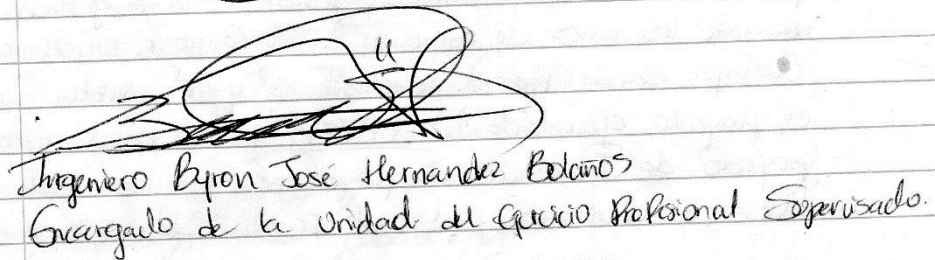 Ingeniero Byron José Hernandez Bolaños
Encargado de la Unidad del Ejercicio Profesional Supervisado.